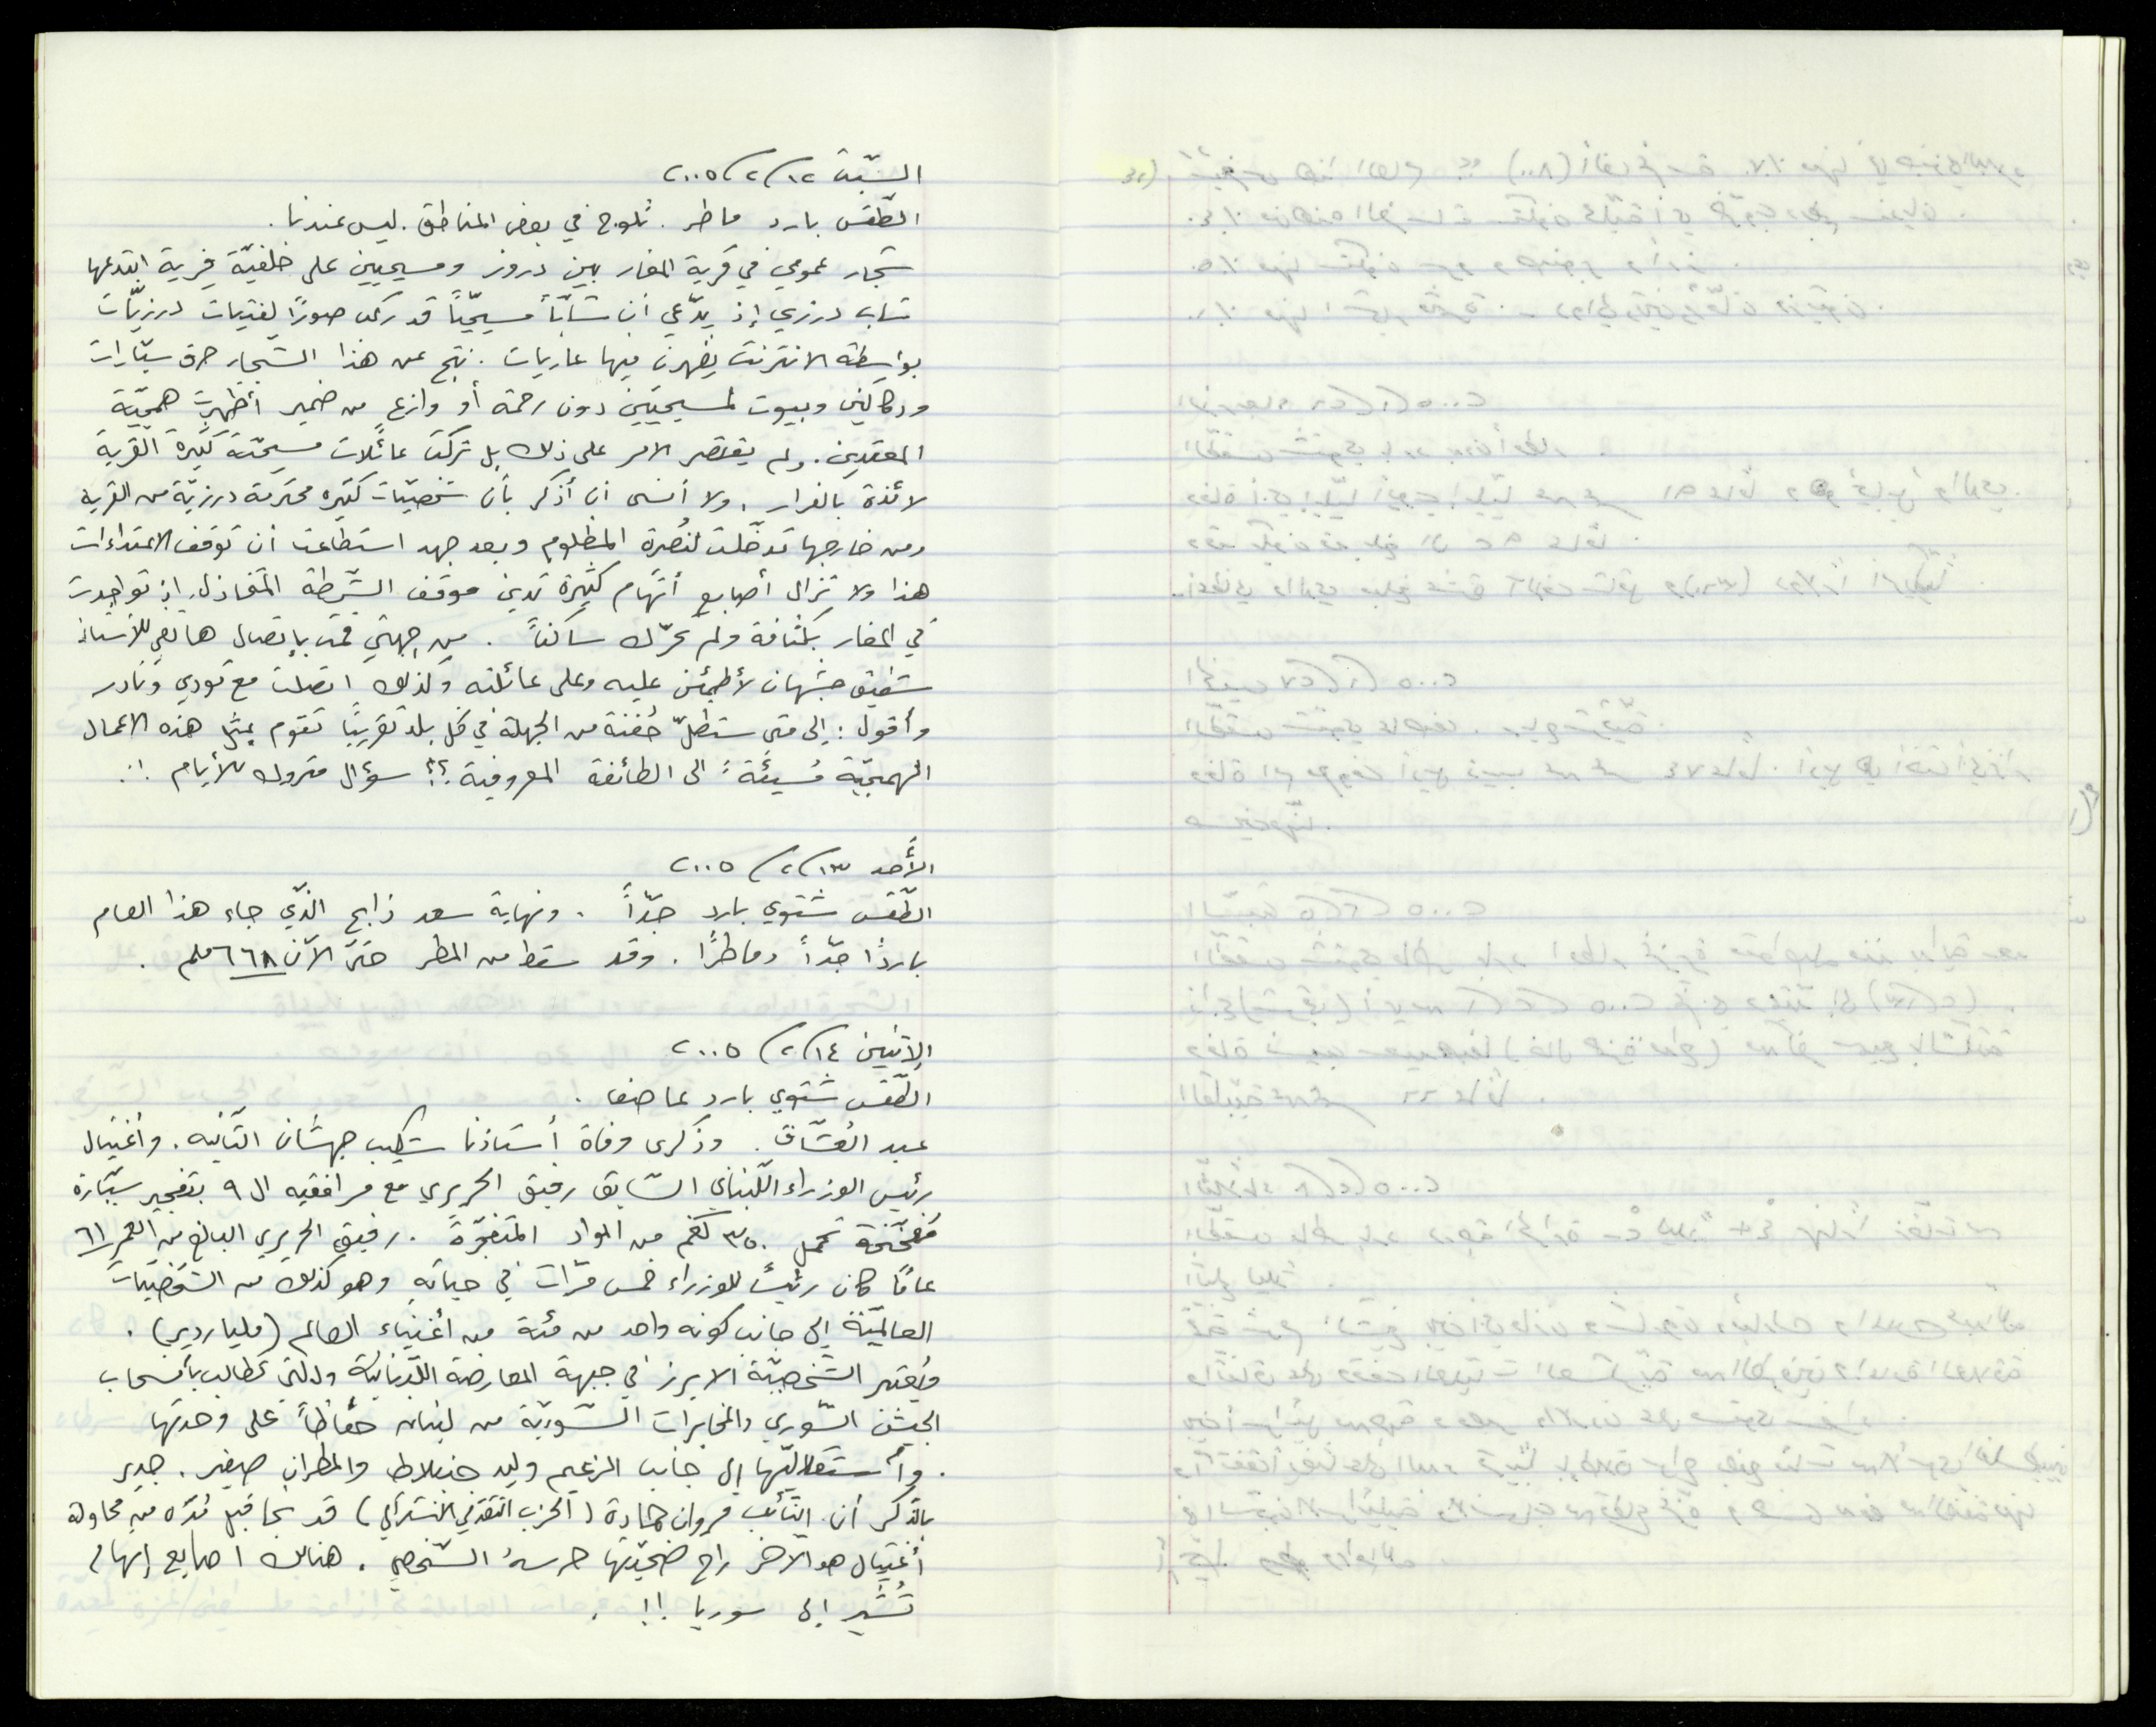 السّبت ١٢/٢/٢٠٠٥
الطّقس بارد ماطر. ثلوج في بعض المناطق. ليس عندنا.
شجار عمومي في قرية المغار بين دروز ومسيحيين على خلفيّة فِرية ابتدعها
شاب درزي إذ يدّعي أن شابّاً مسيحيّاً قد ركّب صورًا لفتيات درزيّات
بواسطة الانترنت يظهرن فيها عاريات. نتج عن هذا الشّجار حرق سيّارات
ودكاكين وبيوت لمسيحيّين دون رحمة أو وازعٍ من ضمير أظهرت همجيّة
المعتدين. ولم يقتصر الامر على ذلك بل تركت عائلات مسيحيّة كثيرة القرية
لائذة بالفرار. ولا أنسى ان أذكر بأن شخصيّات كثيره محترمة درزيّة من القرية
ومن خارجها تدخّلت لنُصرة المظلوم وبعد جهد استطاعت ان توقف الاعتداءات
هذا ولا تزال أصابع أتّهام كثيرة تدين موقف الشّرطة المتخاذل، إذ تواجدت
في المغار بكثافة ولم تحرّك ساكناً. من جهتي قمت بإتصال هاتفي للأستاذ
شفيق جشهان لأطمئن عليه وعلى عائلته وكذلك اتصلت مع نوري ونادر
وأقول: إلى متى ستظلّ حُفنة من الجهلة في كل بلد تقريبًا تقوم بمثل هذه الاعمال
الهمجيّة مُسيئةً الى الطائفة المعروفية؟؟ سؤال متروك للأيام!!.
الأحد ١٣/٢/٢٠٠٥
الطّقس شتوي بارد جدّاً. ونهاية سعد ذابح الذّي جاء هذا العام
باردًا جدّاً وماطرًا. وقد سقط من المطر حتى الآن ٦٦٨ ملم.
الإثنين ١٤/٢/٢٠٠٥
الطّقس شتوي بارد عاصف.
عيد العُشّاق. وذكرى وفاة أستاذنا شكيب جهشان الثّانيه. وأغتيال
رئيس الوزراء اللّبناني السّابق رفيق الحريري مع مرافقيه ال ٩ بتفجير سيّارة
مُفخّخة تحمل ٣٥٠ كغم من المواد المتفجّرة. رفيق الحريري البالغ من العمر ٦١
عامًا كان رئيساً للوزراء خمس مرّات في حياته وهو كذلك من الشّخصيّات
العالميّة إلى جانب كونه واحد من مئة من أغنياء العالم (مليارديرٍ).
ويُعتبر الشّخصيّة الابرز في جبهة المعارضة اللّبنانيّة والتى تطالب بأنسحاب
الجيش السّوري والمخابرات السّوريّة من لبنان حفاظاً على وحدتها
وأستقلاليّتها إلى جانب الزعيم وليد جنبلاط والمطران صفير. جدير
بالذّكر أن النّائب مروان حمادة (الحزب التقدّمي الاشتراكي) قد نجا قبل مُدّه من محاولة
أغتيال هو الاخر راح ضحيّتها حرسهُ الشّخصي. هنالك اصابع إتهام
تُشير إلى سوريا!!.